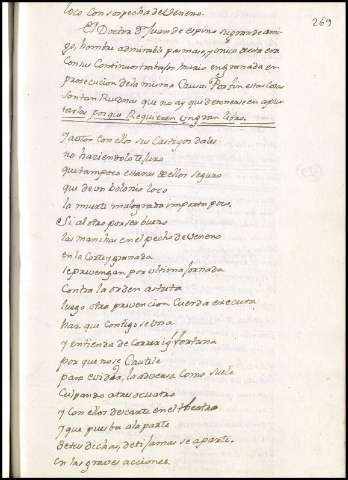 269
loco Con sospecha de Veneno.
El Doctor Dn Juan de espino su grande ami-
go, hombre admirable pasmoso, y único de esta era
Con sus Continuos trabajos murio en granada en
prosecucion de la misma Causa. Por fin estas cosas
son tan Ruidosas que no ay que detenerse en apun-
tarlas porque Requieren un gran libro.
Jacton con ellos sus Castigos dales
no haziendolo te juro
que tampoco estaras de ellos seguro
que de un bolonio loco
la muerte malograda importa poco,
Si al otro por ser bueno
las manchas en el pecho de Veneno
en la Corte y granada
se prevengan por ultima jornada
Contra la orden astuta
luego otra prevencion Cuerda executa
haz que Contigo se Una
y entienda de Correr igl fortuna
por que no se Cautele
para cuidar, la adversa como suele
Culpando a tres o cuatro
y Con ellos descarte en el theatro
y que pueba a la parte
de tus dichas, de ti jamas se aparte.
en las graves acciones